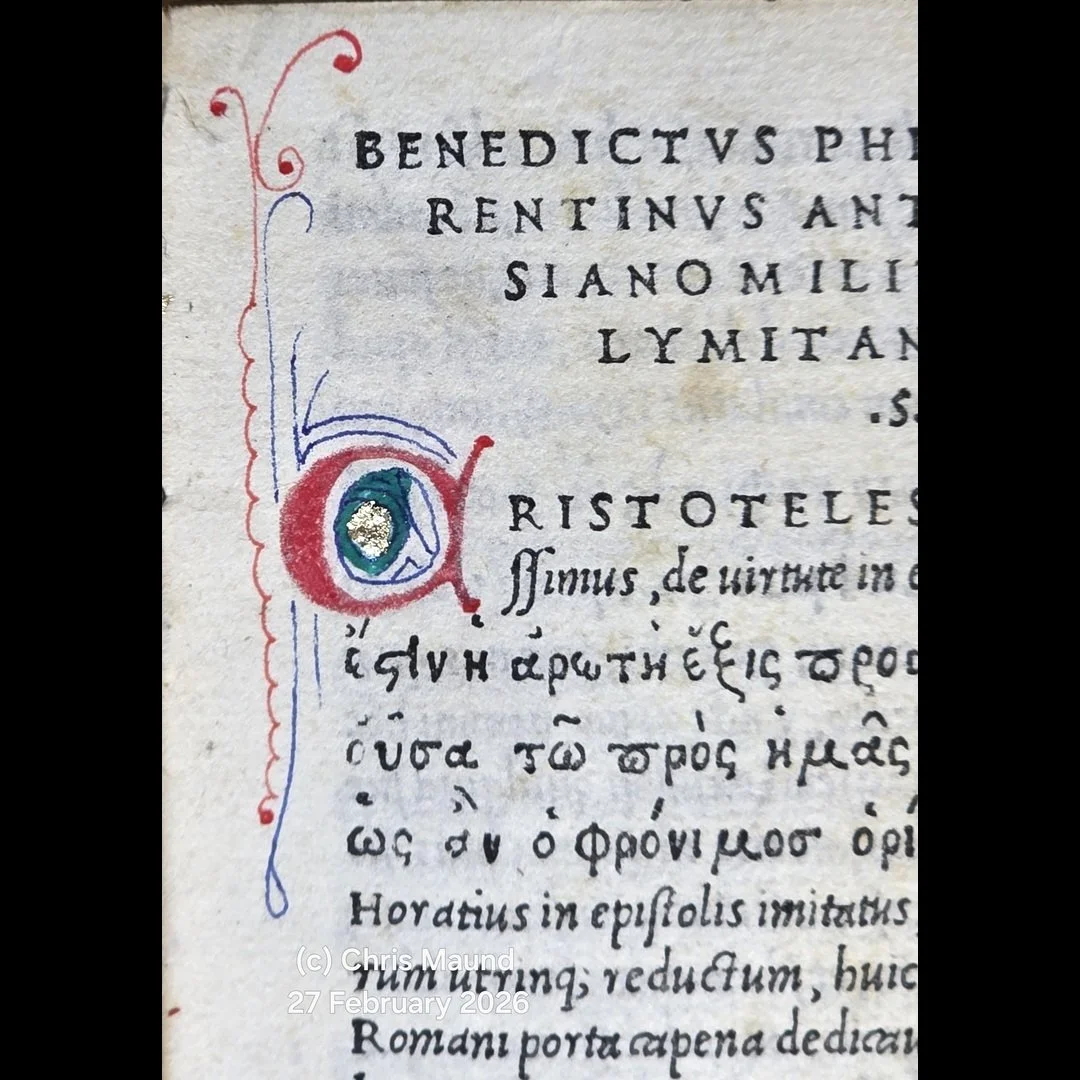 BENEDICTVS PHI
RENTINVS ANT
SIANO MILI
LYMITAN
.S.
RISTOTELES
ſſimus, de uirtute in
ἔϛιν ἡ ἀρωτὴ ἕξις ϖρο
οὖσα τῶ ϖρὸς ἡμᾶς
ὡς ἂν ὁ φρόνιμοσ ὁρί
Horatius in epiſtolis imitatus
rum utrinq; reductum, huic
Romani porta capena dedicau
(c) Chris Maund
27 February 2026